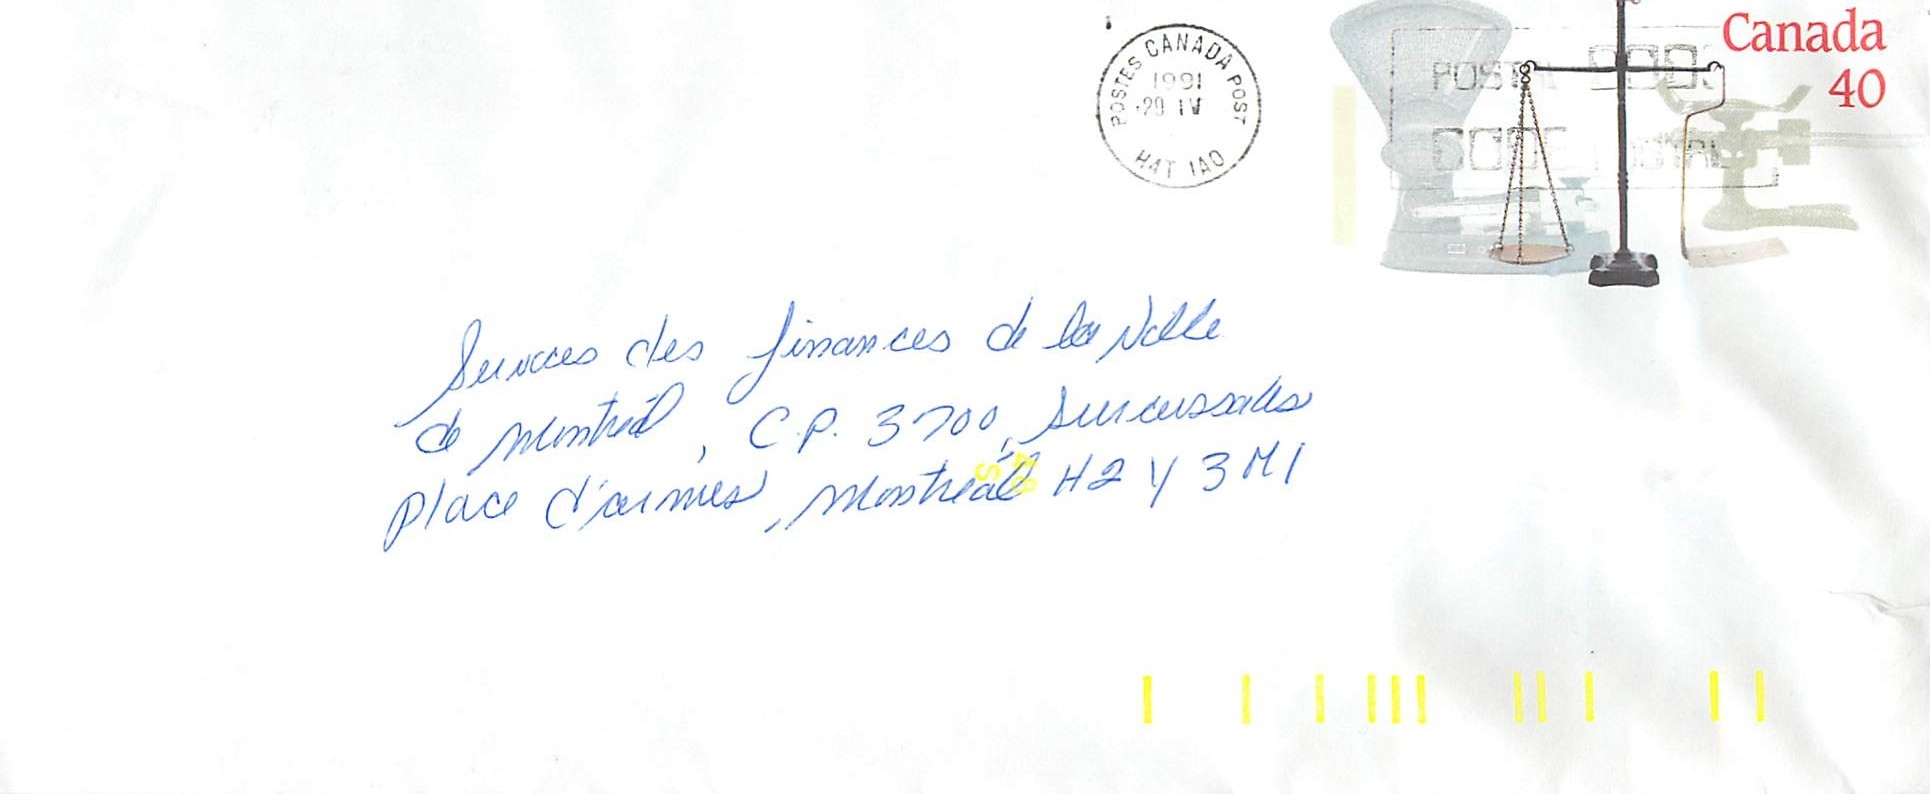 POSTES CANADA POST
1991
29 IV
H4T 1A0
Canada
40
POSTAL CODE
CODE POSTAL
Services des finances de la Ville
de Montréal, C.P. 3700, Succursale
place d'armes, Montréal H2Y 3M1